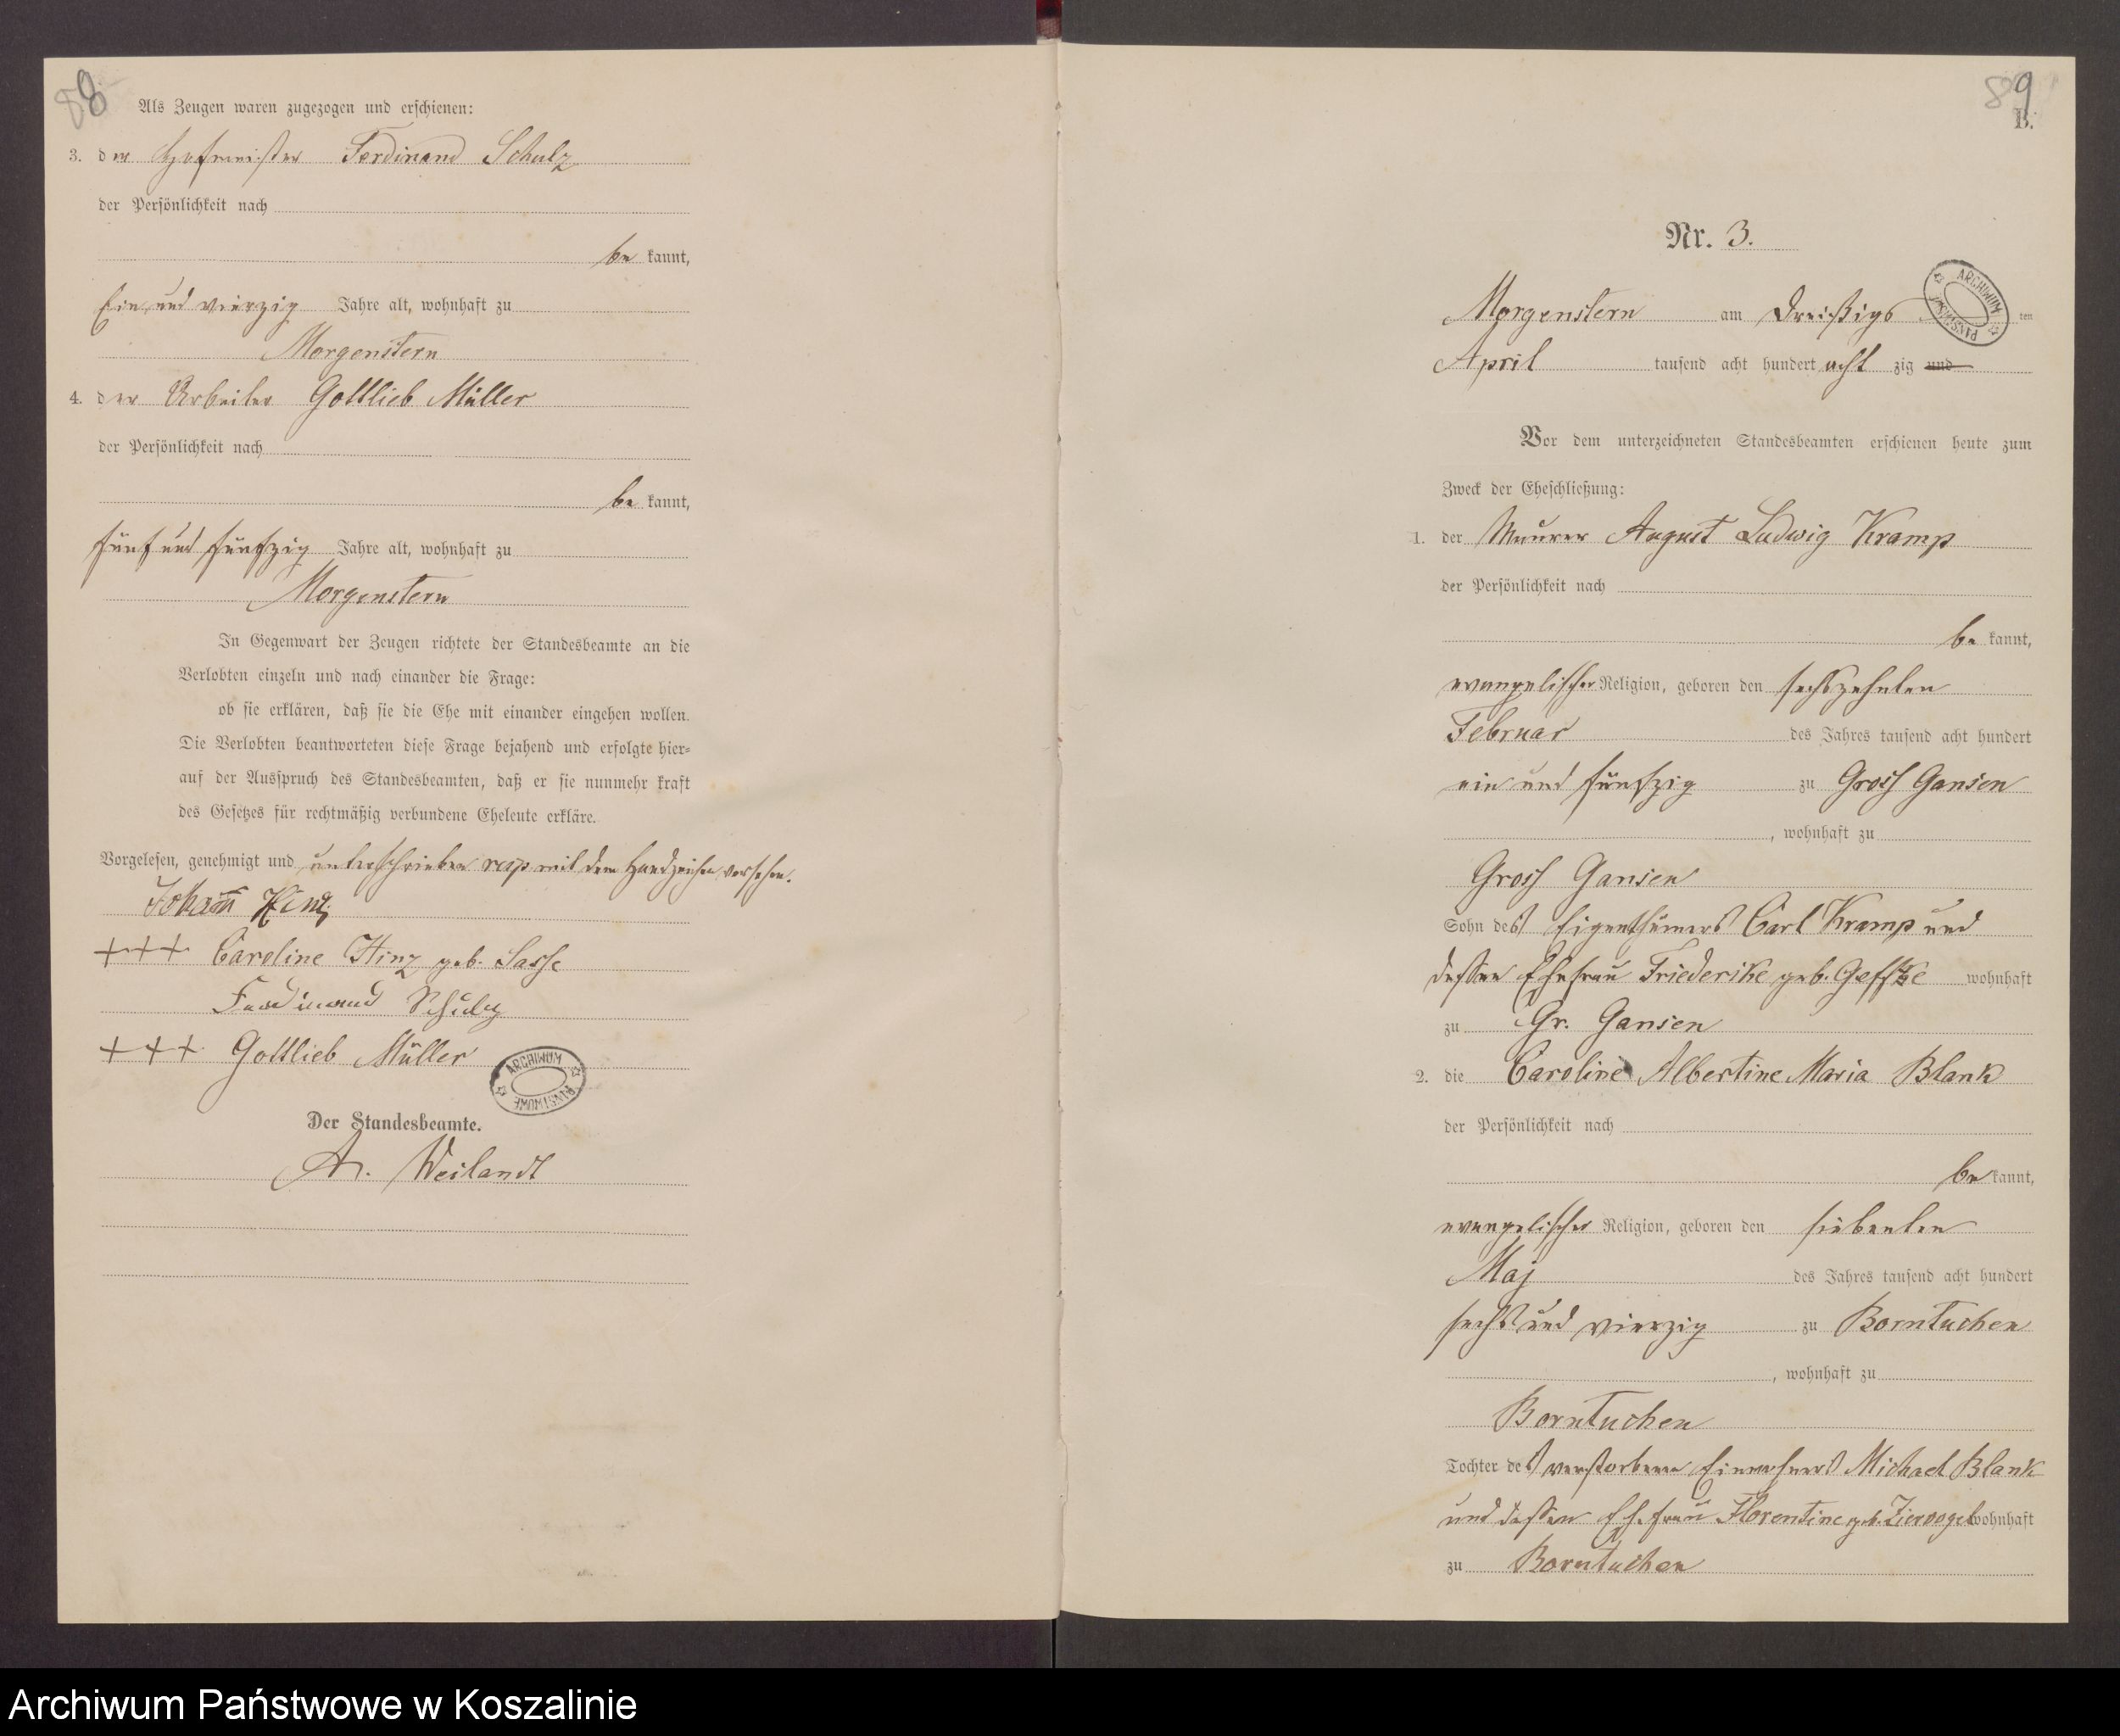 88
Als Zeugen waren zugezogen und erschienen:
3. der Hofmeister Ferdinand Schulz
der Persönlichkeit nach
be kannt,
Ein und vierzig Jahre alt, wohnhaft zu
Morgenstern
4. der Arbeiter Gottlieb Müller
der Persönlichkeit nach
be kannt,
fünf und fünfzig Jahre alt, wohnhaft zu
Morgenstern
In Gegenwart der Zeugen richtete der Standesbeamte an die
Verlobten einzeln und nach einander die Frage:
ob sie erklären, daß sie die Ehe mit einander eingehen wollen.
Die Verlobten beantworteten diese Frage bejahend und erfolgte hier-
auf der Ausspruch des Standesbeamten, daß er sie nunmehr kraft
des Gesetzes für rechtmäßig verbundene Eheleute erkläre.
Vorgelesen, genehmigt und unterschrieben resp mit dem Handzeichen versehen.
Johann Hinz
+++ Caroline Hinz geb. Sasse
Ferdinand Schulz
+++ Gottlieb Müller
ARCHIWUM PAŃSTWOWE
Der Standesbeamte.
A. Weilandt
89
B.
Nr. 3.
ARCHIWUM PAŃSTWOWE
Morgenstern am Dreißigs ten
April tausend acht hundert acht zig und
Vor dem unterzeichneten Standesbeamten erschienen heute zum
Zweck der Eheschließung:
1. der Maurer August Ludwig Kramp
der Persönlichkeit nach
be kannt,
evangelischer Religion, geboren den sechszehnten
Februar des Jahres tausend acht hundert
ein und fünfzig zu Gross Gansen
, wohnhaft zu
Gross Gansen
Sohn des Eigenthümers Carl Kramp und
dessen Ehefrau Friederike geb. Geffke wohnhaft
zu Gr. Gansen
2. die Caroline Albertine Maria Blank
der Persönlichkeit nach
be kannt,
evangelischer Religion, geboren den siebenten
Maj des Jahres tausend acht hundert
sechs und vierzig zu Borntuchen
, wohnhaft zu
Borntuchen
Tochter des verstorbenen Einwohners Michael Blank
und dessen Ehefrau Florentine geb. Ziervogel wohnhaft
zu Borntuchen
Archiwum Państwowe w Koszalinie